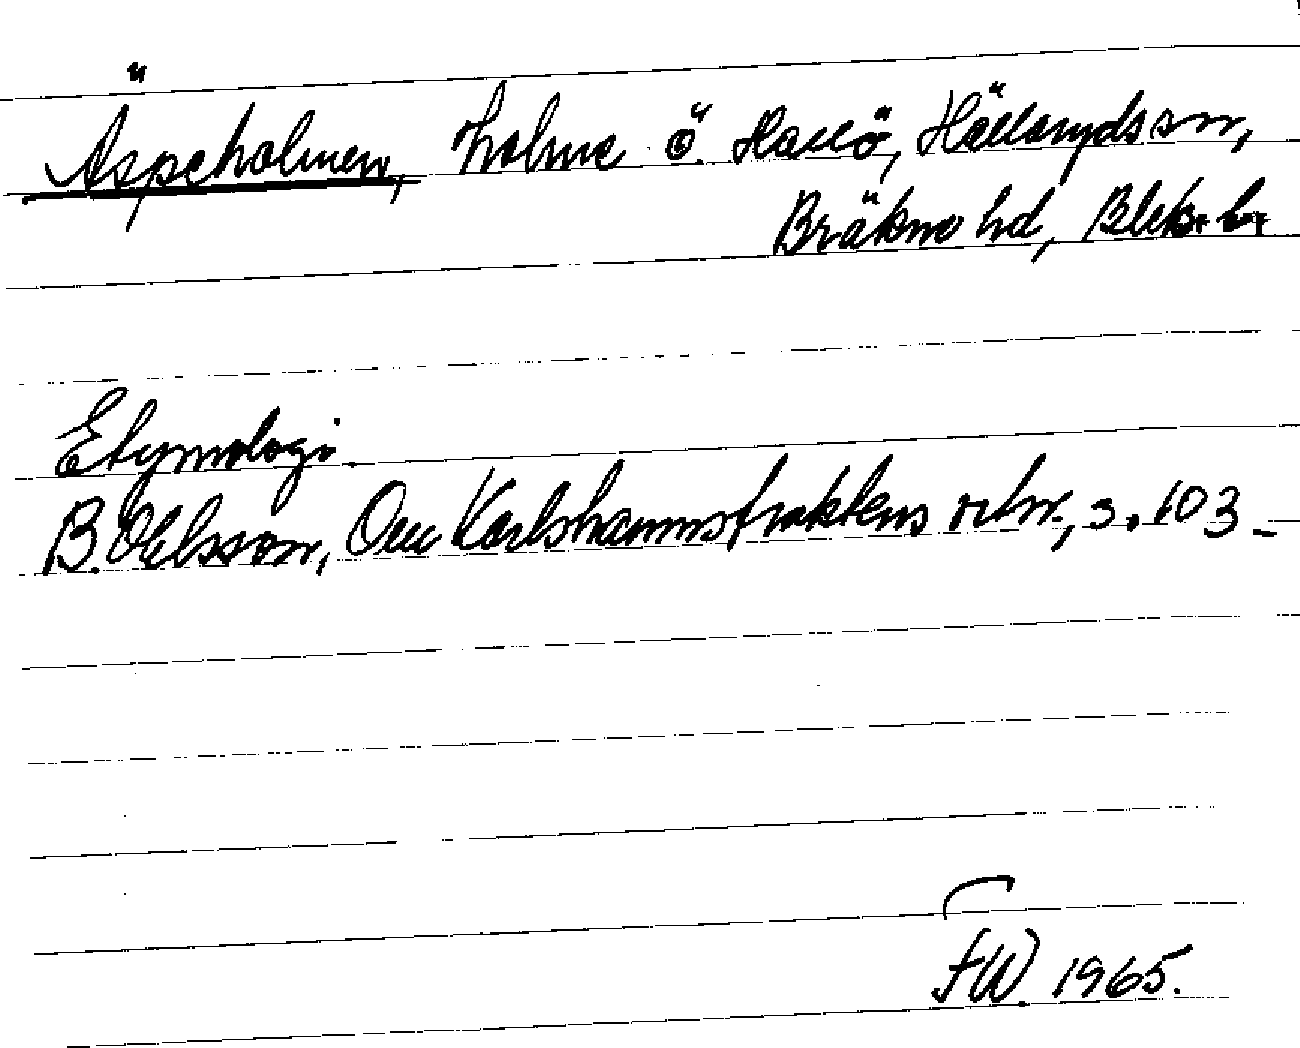 Äspeholmen, holme ö. Hallö, Hällaryds sn,
Bräkne hd, Blek. l.
Etymologi.
B. Ohlsson, Om Karlshamnstraktens ortn., s. 103.
FW. 1965.